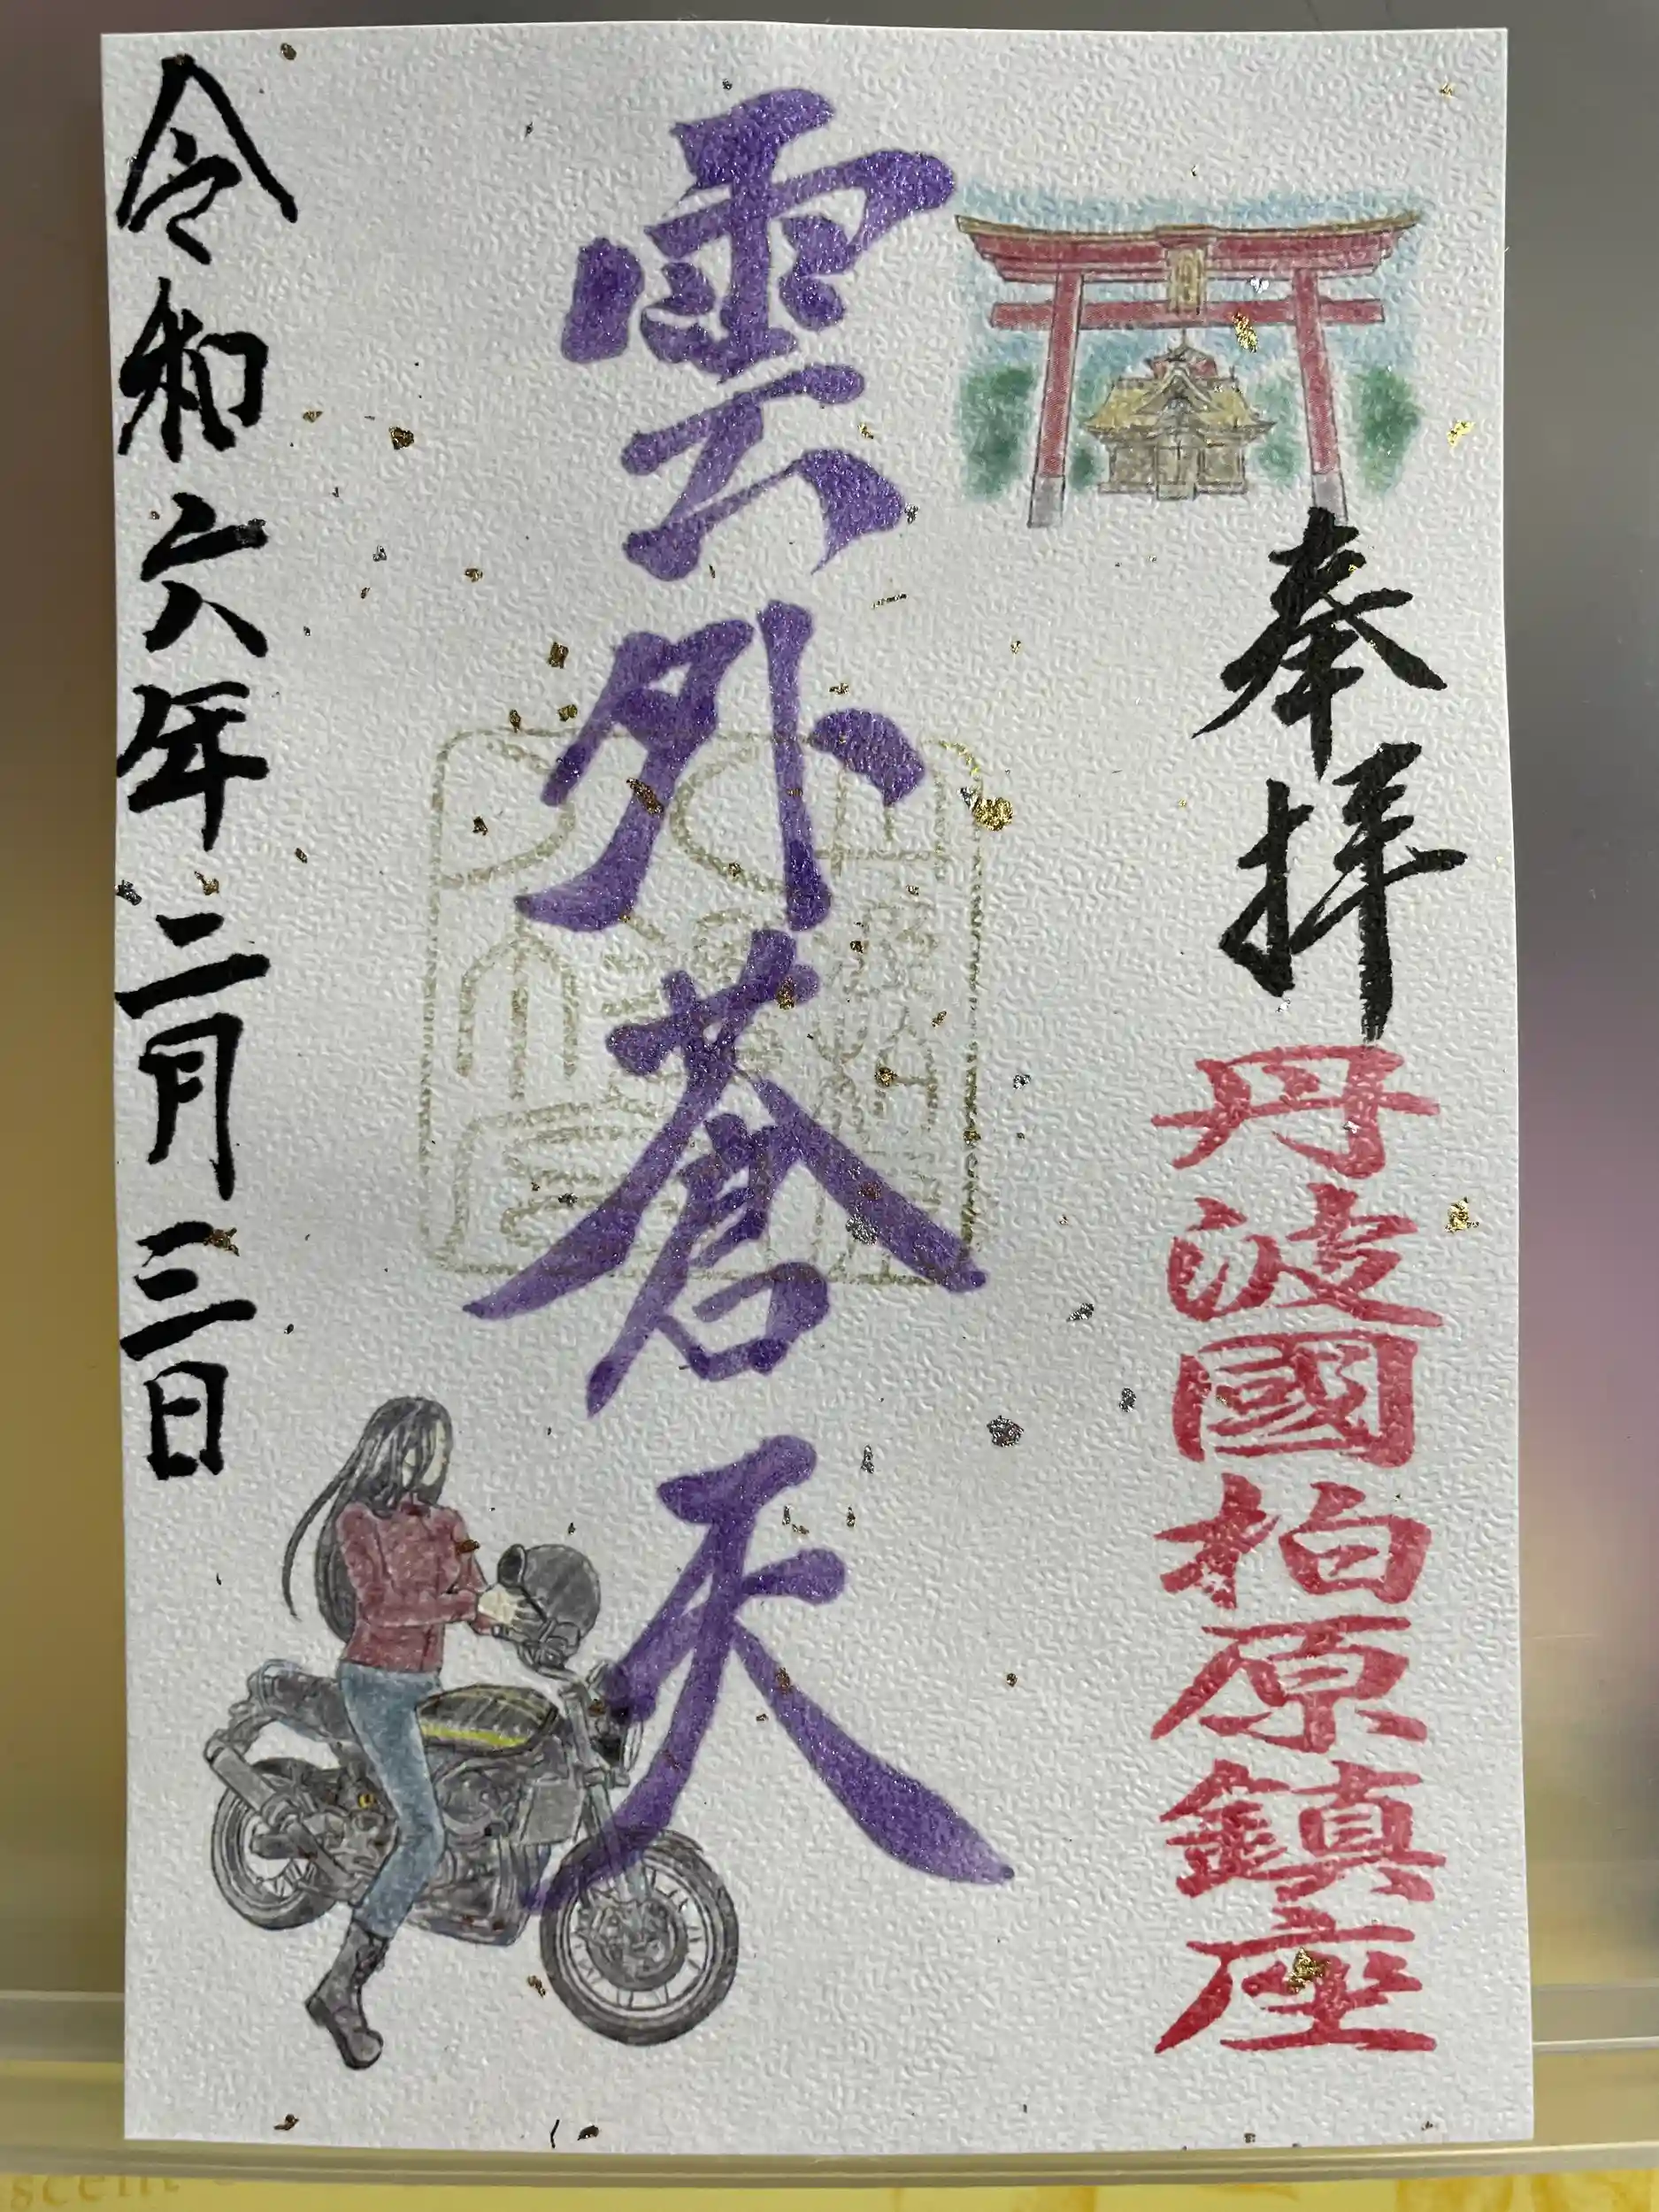 奉拝
丹波國柏原鎮座
雲外蒼天
令和六年二月三日
scent